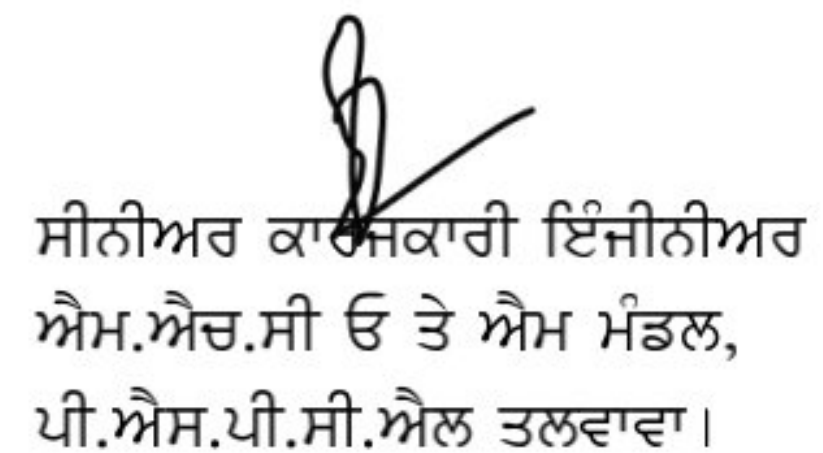 ਸੀਨੀਅਰ ਕਾਰਜਕਾਰੀ ਇੰਜੀਨੀਅਰ
ਐਮ.ਐਚ.ਸੀ ਓ ਤੇ ਐਮ ਮੰਡਲ,
ਪੀ.ਐਸ.ਪੀ.ਸੀ.ਐਲ ਤਲਵਾਵਾ।